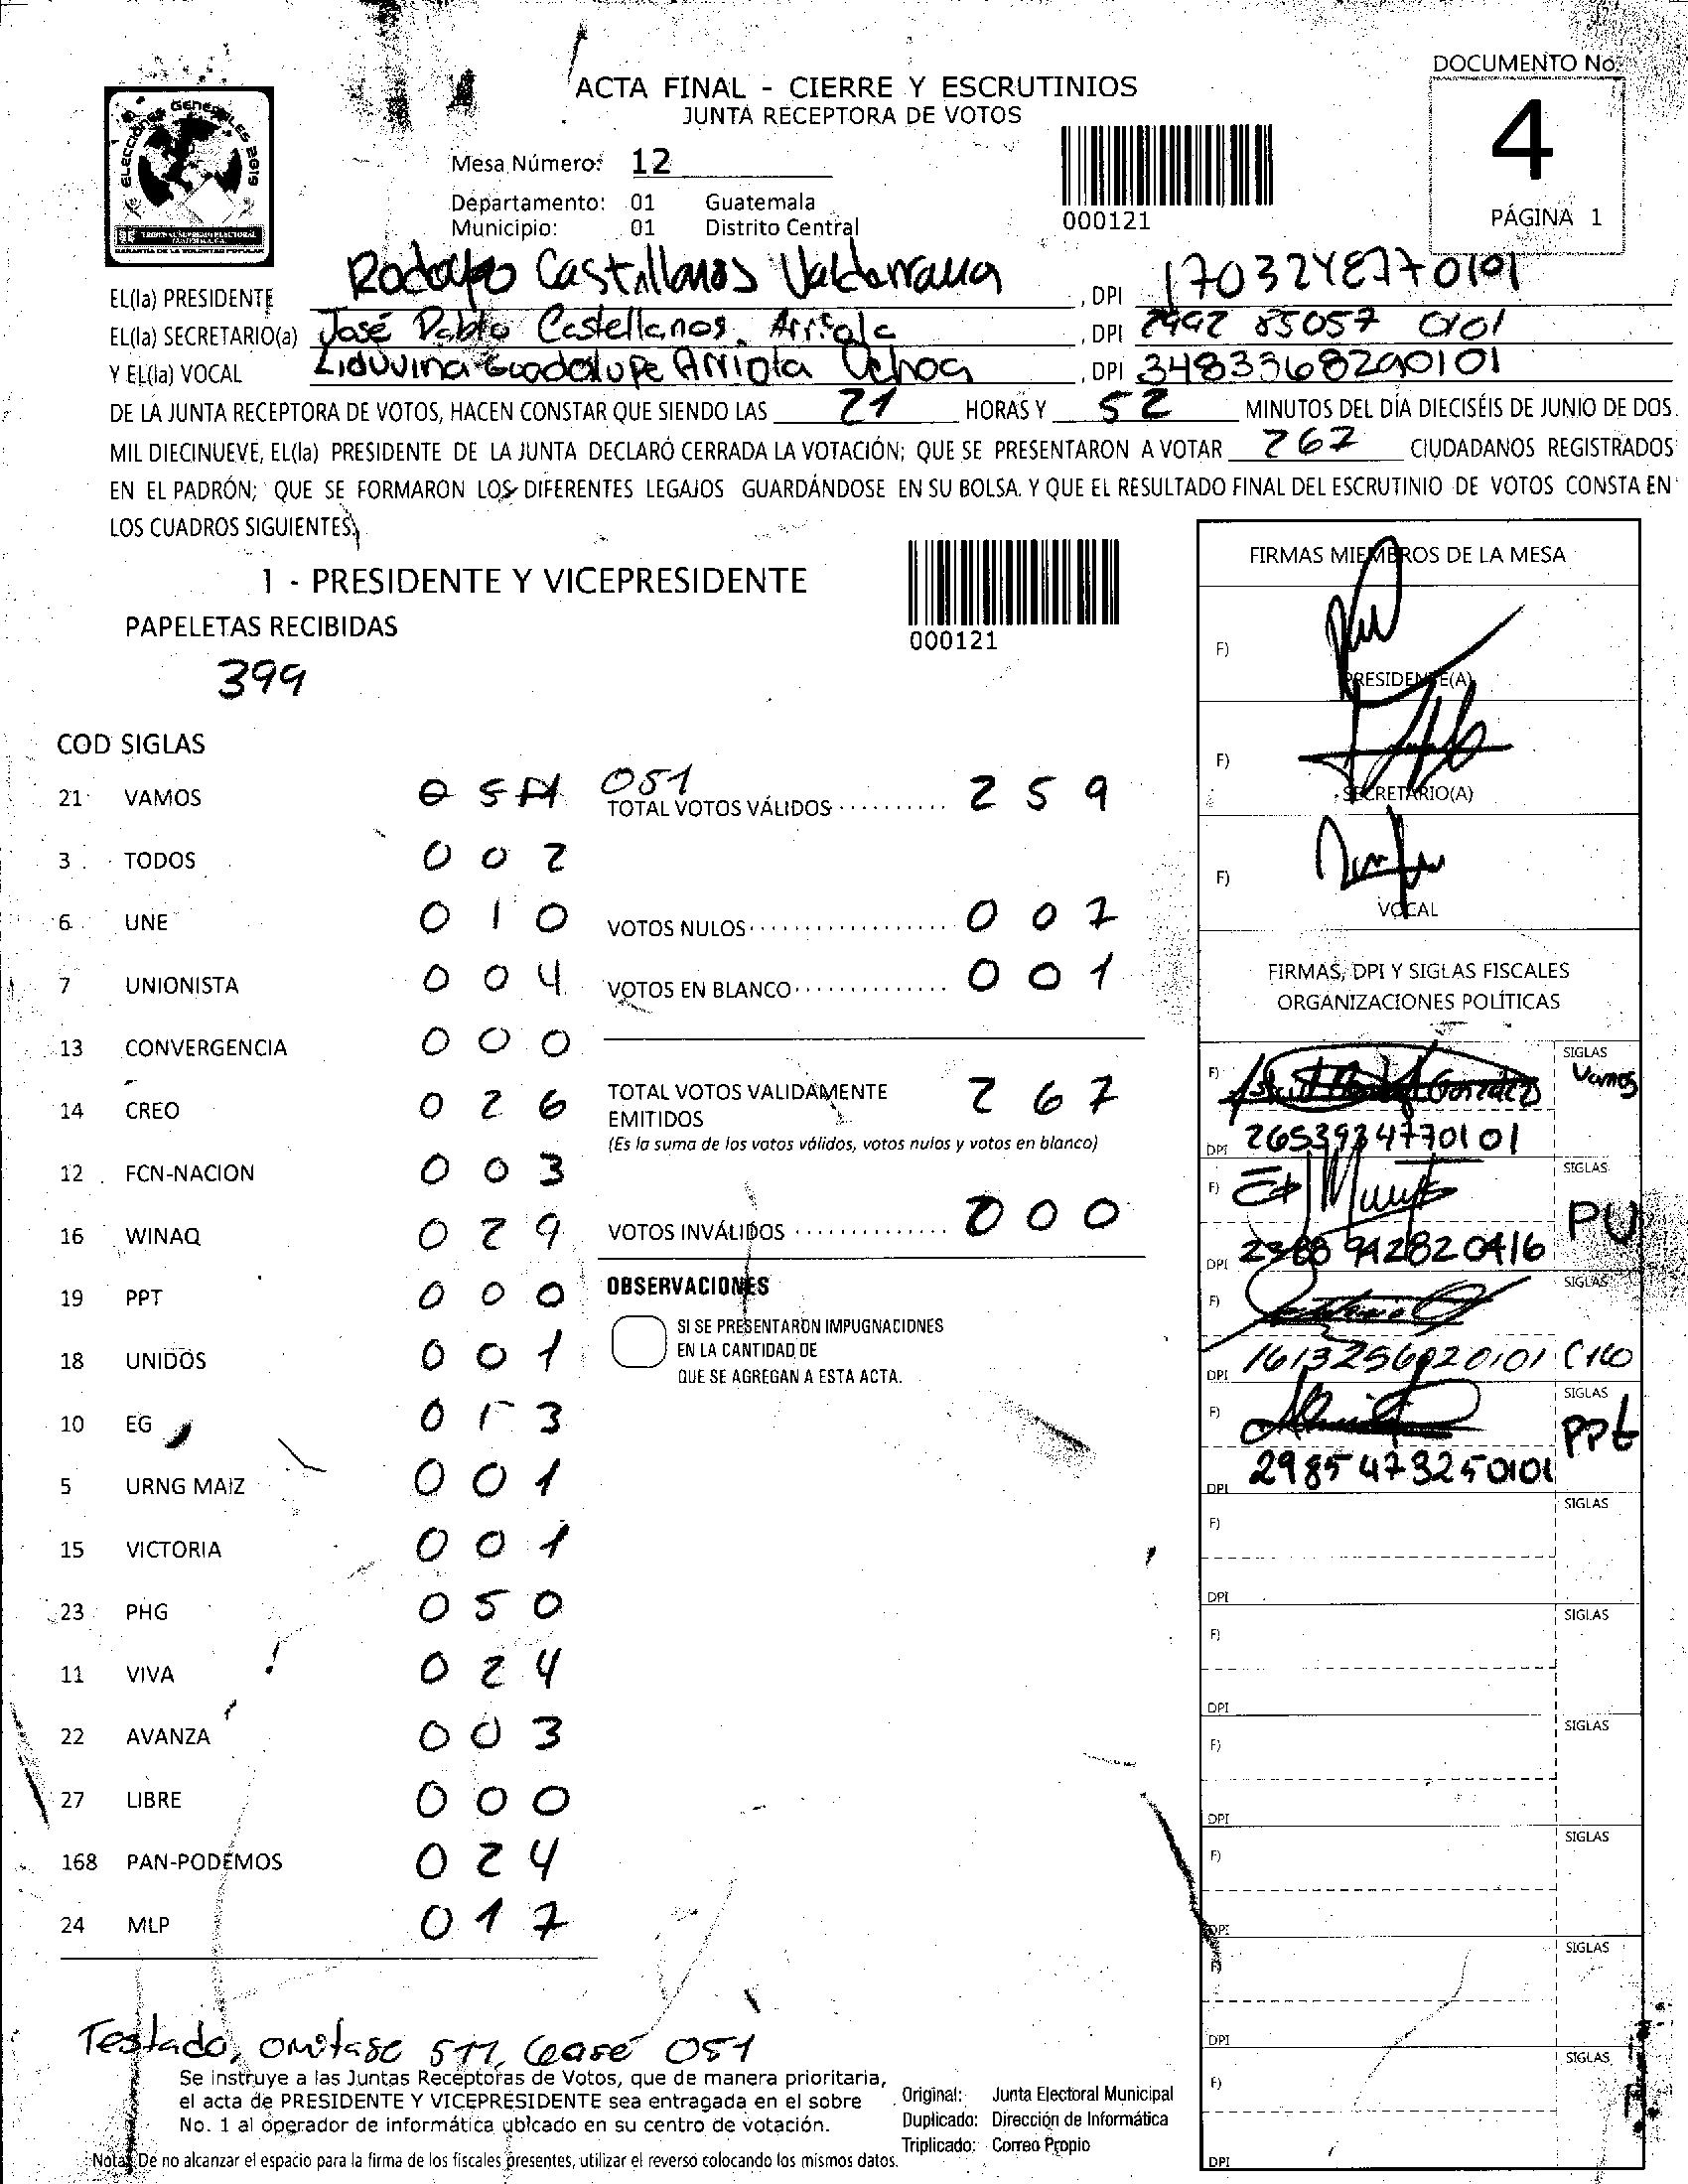 DOCUMENTO No.
4
PÁGINA 1
ELECCIONES GENERALES 2019
TRIBUNAL SUPREMO ELECTORAL
GUATEMALA, C.A.
GARANTIA DE LA VOLUNTAD POPULAR
ACTA FINAL - CIERRE Y ESCRUTINIOS
JUNTA RECEPTORA DE VOTOS
Mesa Número: 12
Departamento: 01 Guatemala
Municipio: 01 Distrito Central
000121
EL(la) PRESIDENTE Rodolfo Castillanos Valderrama, DPI 1703248770101
EL(la) SECRETARIO(a) José Pablo Castellanos Arriola, DPI 2492 85057 0101
Y EL(la) VOCAL Liduvina Guadalupe Arriola Ochoa, DPI
DE LA JUNTA RECEPTORA DE VOTOS, HACEN CONSTAR QUE SIENDO LAS 21 HORAS Y 52 MINUTOS DEL DÍA DIECISÉIS DE JUNIO DE DOS
MIL DIECINUEVE, EL(la) PRESIDENTE DE LA JUNTA DECLARÓ CERRADA LA VOTACIÓN; QUE SE PRESENTARON A VOTAR 267 CIUDADANOS REGISTRADOS
EN EL PADRÓN; QUE SE FORMARON LOS DIFERENTES LEGAJOS GUARDÁNDOSE EN SU BOLSA. Y QUE EL RESULTADO FINAL DEL ESCRUTINIO DE VOTOS CONSTA EN
LOS CUADROS SIGUIENTES.
1 - PRESIDENTE Y VICEPRESIDENTE
PAPELETAS RECIBIDAS
399
000121
COD SIGLAS
21 VAMOS 051
3 TODOS 0 0 2
6 UNE 0 1 0
7 UNIONISTA 0 0 4
13 CONVERGENCIA 0 0 0
14 CREO 0 2 6
12 FCN-NACION 0 0 3
16 WINAQ 0 2 9
19 PPT 0 0 0
18 UNIDOS 0 0 1
10 EG 0 1 3
5 URNG MAIZ 0 0 1
15 VICTORIA 0 0 1
23 PHG 0 5 0
11 VIVA 0 2 4
22 AVANZA 0 0 3
27 LIBRE 0 0 0
168 PAN-PODEMOS 0 2 4
24 MLP 0 1 7
TOTAL VOTOS VÁLIDOS 2 5 9
VOTOS NULOS 0 0 7
VOTOS EN BLANCO 0 0 1
TOTAL VOTOS VALIDAMENTE
EMITIDOS 2 6 7
(Es la suma de los votos válidos, votos nulos y votos en blanco)
VOTOS INVÁLIDOS 0 0 0
OBSERVACIONES
SI SE PRESENTARON IMPUGNACIONES
EN LA CANTIDAD DE
QUE SE AGREGAN A ESTA ACTA.
FIRMAS MIEMBROS DE LA MESA
F)
PRESIDENTE(A)
F)
SECRETARIO(A)
F)
VOCAL
FIRMAS, DPI Y SIGLAS FISCALES
ORGANIZACIONES POLÍTICAS
F) SIGLAS Vamos
DPI
F) SIGLAS PU
DPI
F) SIGLAS
DPI
F) SIGLAS PPt
DPI 2985473250101
F) SIGLAS
DPI
F) SIGLAS
DPI
F) SIGLAS
DPI
F) SIGLAS
DPI
F) SIGLAS
DPI
F) SIGLAS
DPI
Testado, omitase 511, lease 051
Se instruye a las Juntas Receptoras de Votos, que de manera prioritaria,
el acta de PRESIDENTE Y VICEPRESIDENTE sea entragada en el sobre
No. 1 al operador de informática ubicado en su centro de votación.
Original: Junta Electoral Municipal
Duplicado: Dirección de Informática
Triplicado: Correo Propio
Nota: De no alcanzar el espacio para la firma de los fiscales presentes, utilizar el reverso colocando los mismos datos.